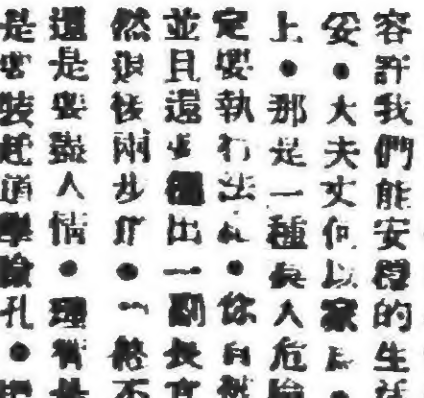 容許我們能安穩的生活
妥●大夫丈何以家●
上●那是一種人危險
定要執行法●你自然
並且還要出一副長官
然退後兩步●終不
還是要盡人情●理
是要裝起道學臉孔●